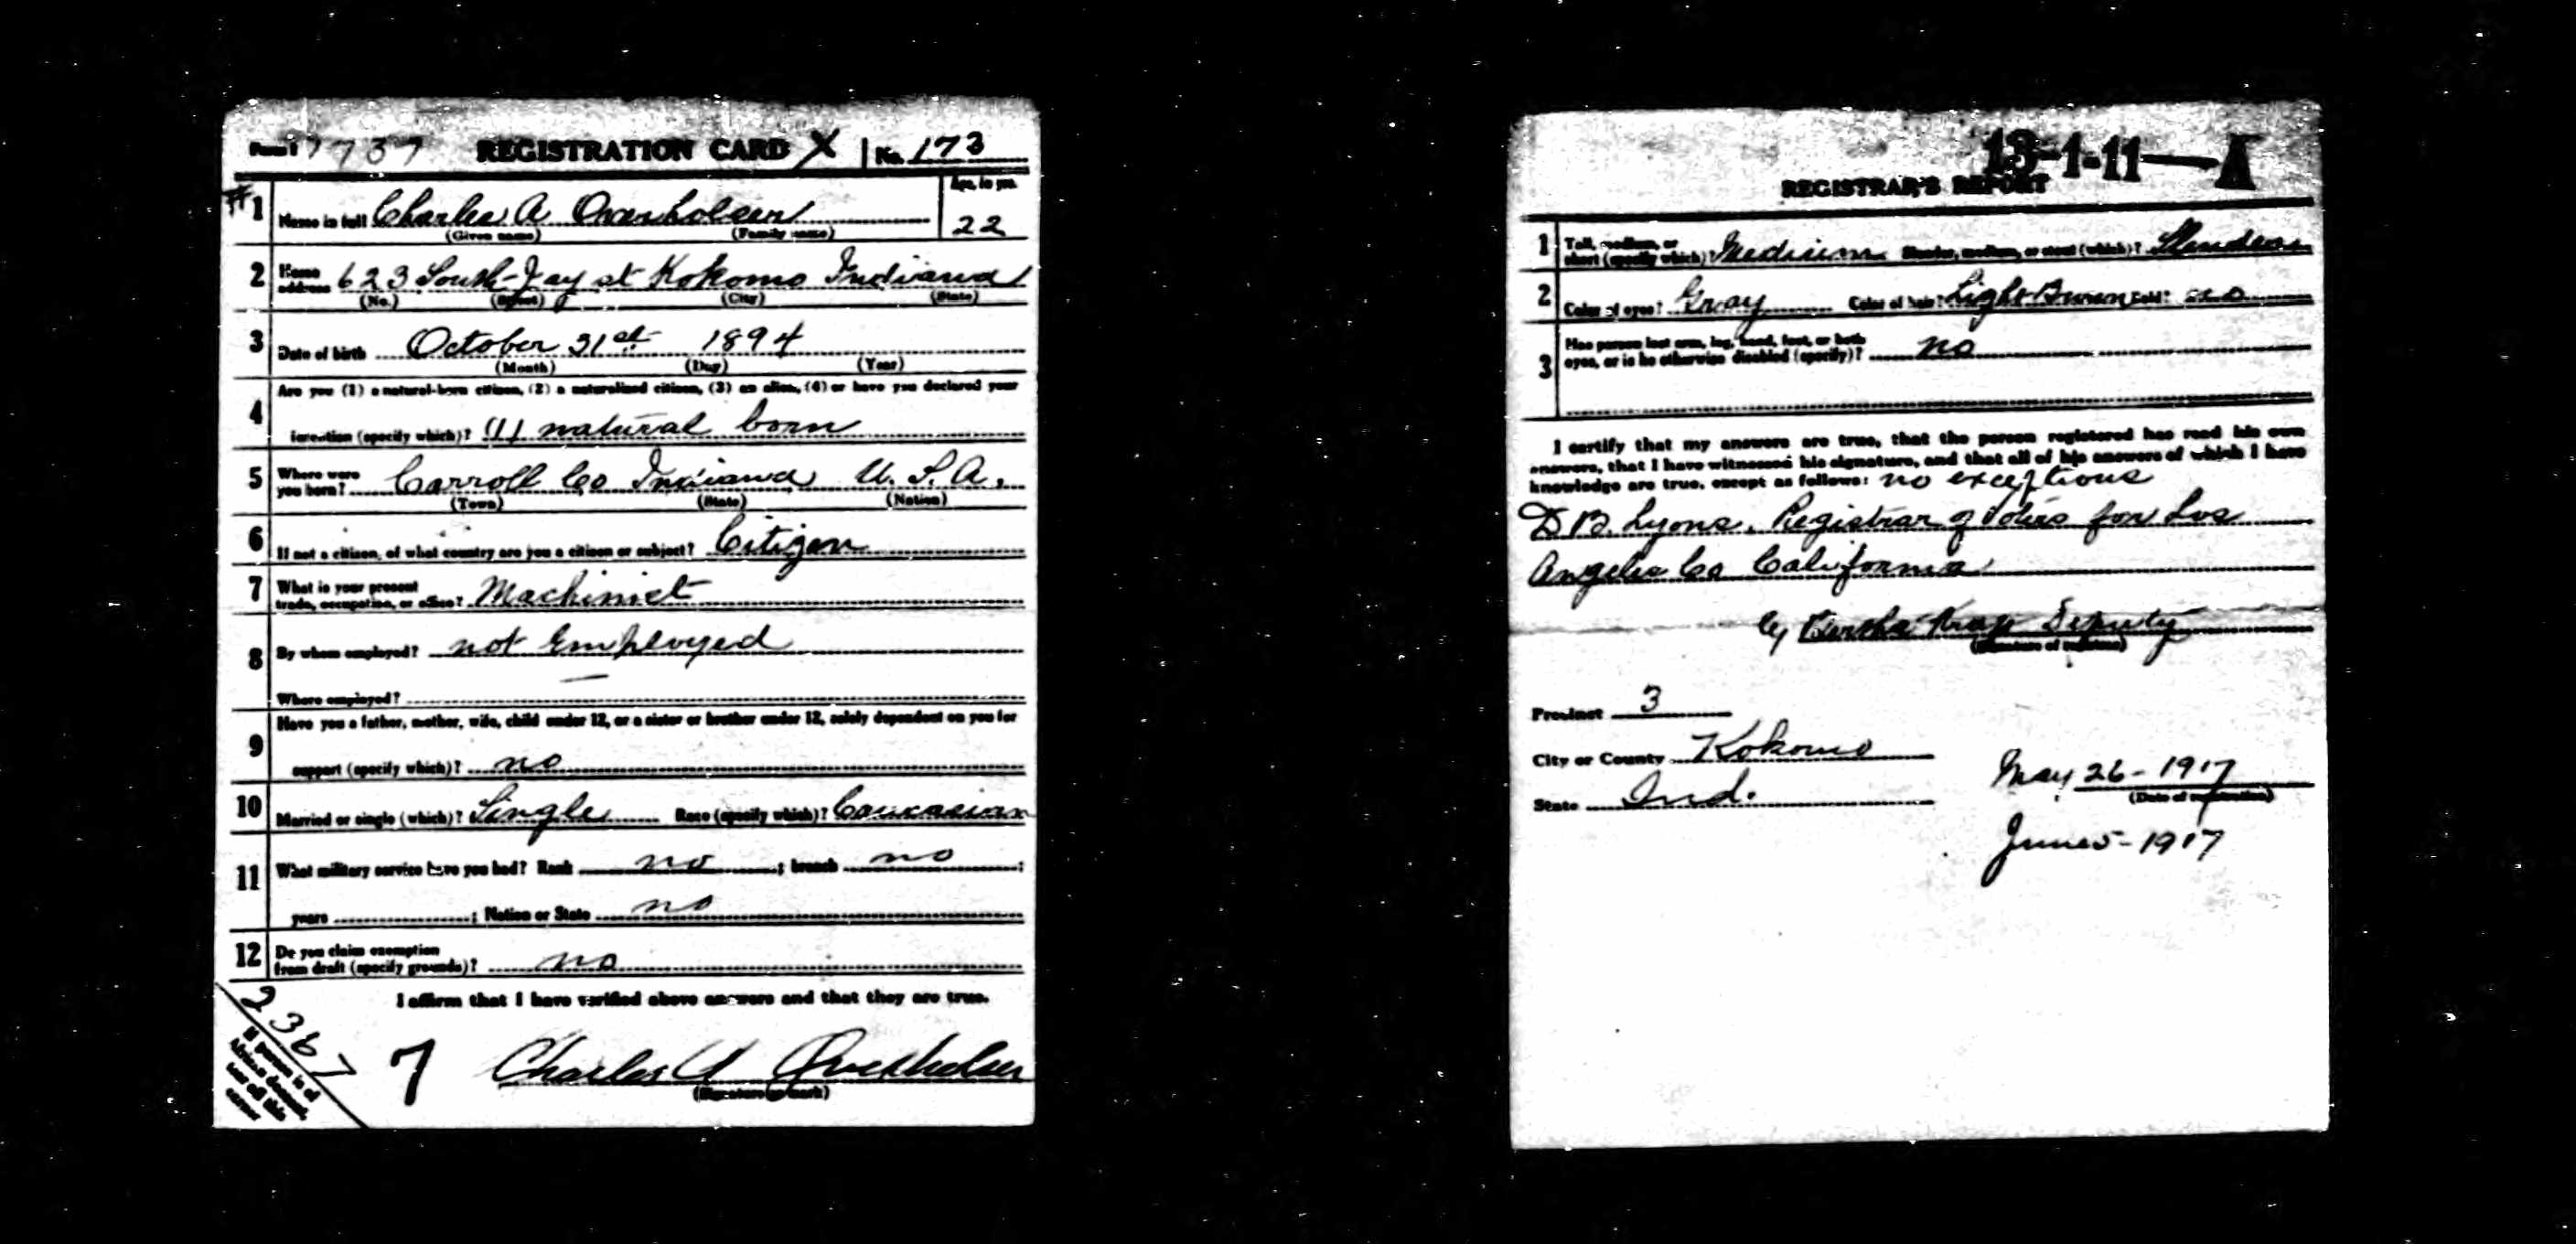 Form 1 7737 REGISTRATION CARD X No. 173
#1 Name in full Charles A Overholser Age, in yrs. 22
(Given name) (Family name)
2 Home address 623 South Jay st Kokomo Indiana
(No.) (Street) (City) (State)
3 Date of birth October 31st 1894
(Month) (Day) (Year)
4 Are you (1) a natural-born citizen, (2) a naturalized citizen, (3) an alien, (4) or have you declared your
intention (specify which)? (1) natural born
5 Where were you born? Carroll Co Indiana U.S.A.
(Town) (State) (Nation)
6 If not a citizen, of what country are you a citizen or subject? Citizen
7 What is your present trade, occupation, or office? Machinist
8 By whom employed? not Employed
Where employed? —
9 Have you a father, mother, wife, child under 12, or a sister or brother under 12, solely dependent on you for
support (specify which)? no
10 Married or single (which)? Single Race (specify which)? Caucasian
11 What military service have you had? Rank no ; branch no ;
years ; Nation or State no
12 Do you claim exemption from draft (specify grounds)? no
I affirm that I have verified above answers and that they are true.
2367
If person is of
African descent,
tear off this
corner
7 Charles A Overholser
(Signature or mark)
13-1-11—A
REGISTRAR'S REPORT
1 Tall, medium, or short (specify which)? Medium Slender, medium, or stout (which)? Slender
2 Color of eyes? Gray Color of hair? Light Brown Bald? no
3 Has person lost arm, leg, hand, foot, or both
eyes, or is he otherwise disabled (specify)? no
I certify that my answers are true, that the person registered has read his own
answers, that I have witnessed his signature, and that all of his answers of which I have
knowledge are true, except as follows: no exceptions
D B. Lyons, Registrar of Voters for Los
Angeles Co California
by Deputy
(Signature of registrar)
Precinct 3
City or County Kokomo
State Ind.
May 26-1917
(Date of registration)
June 5-1917